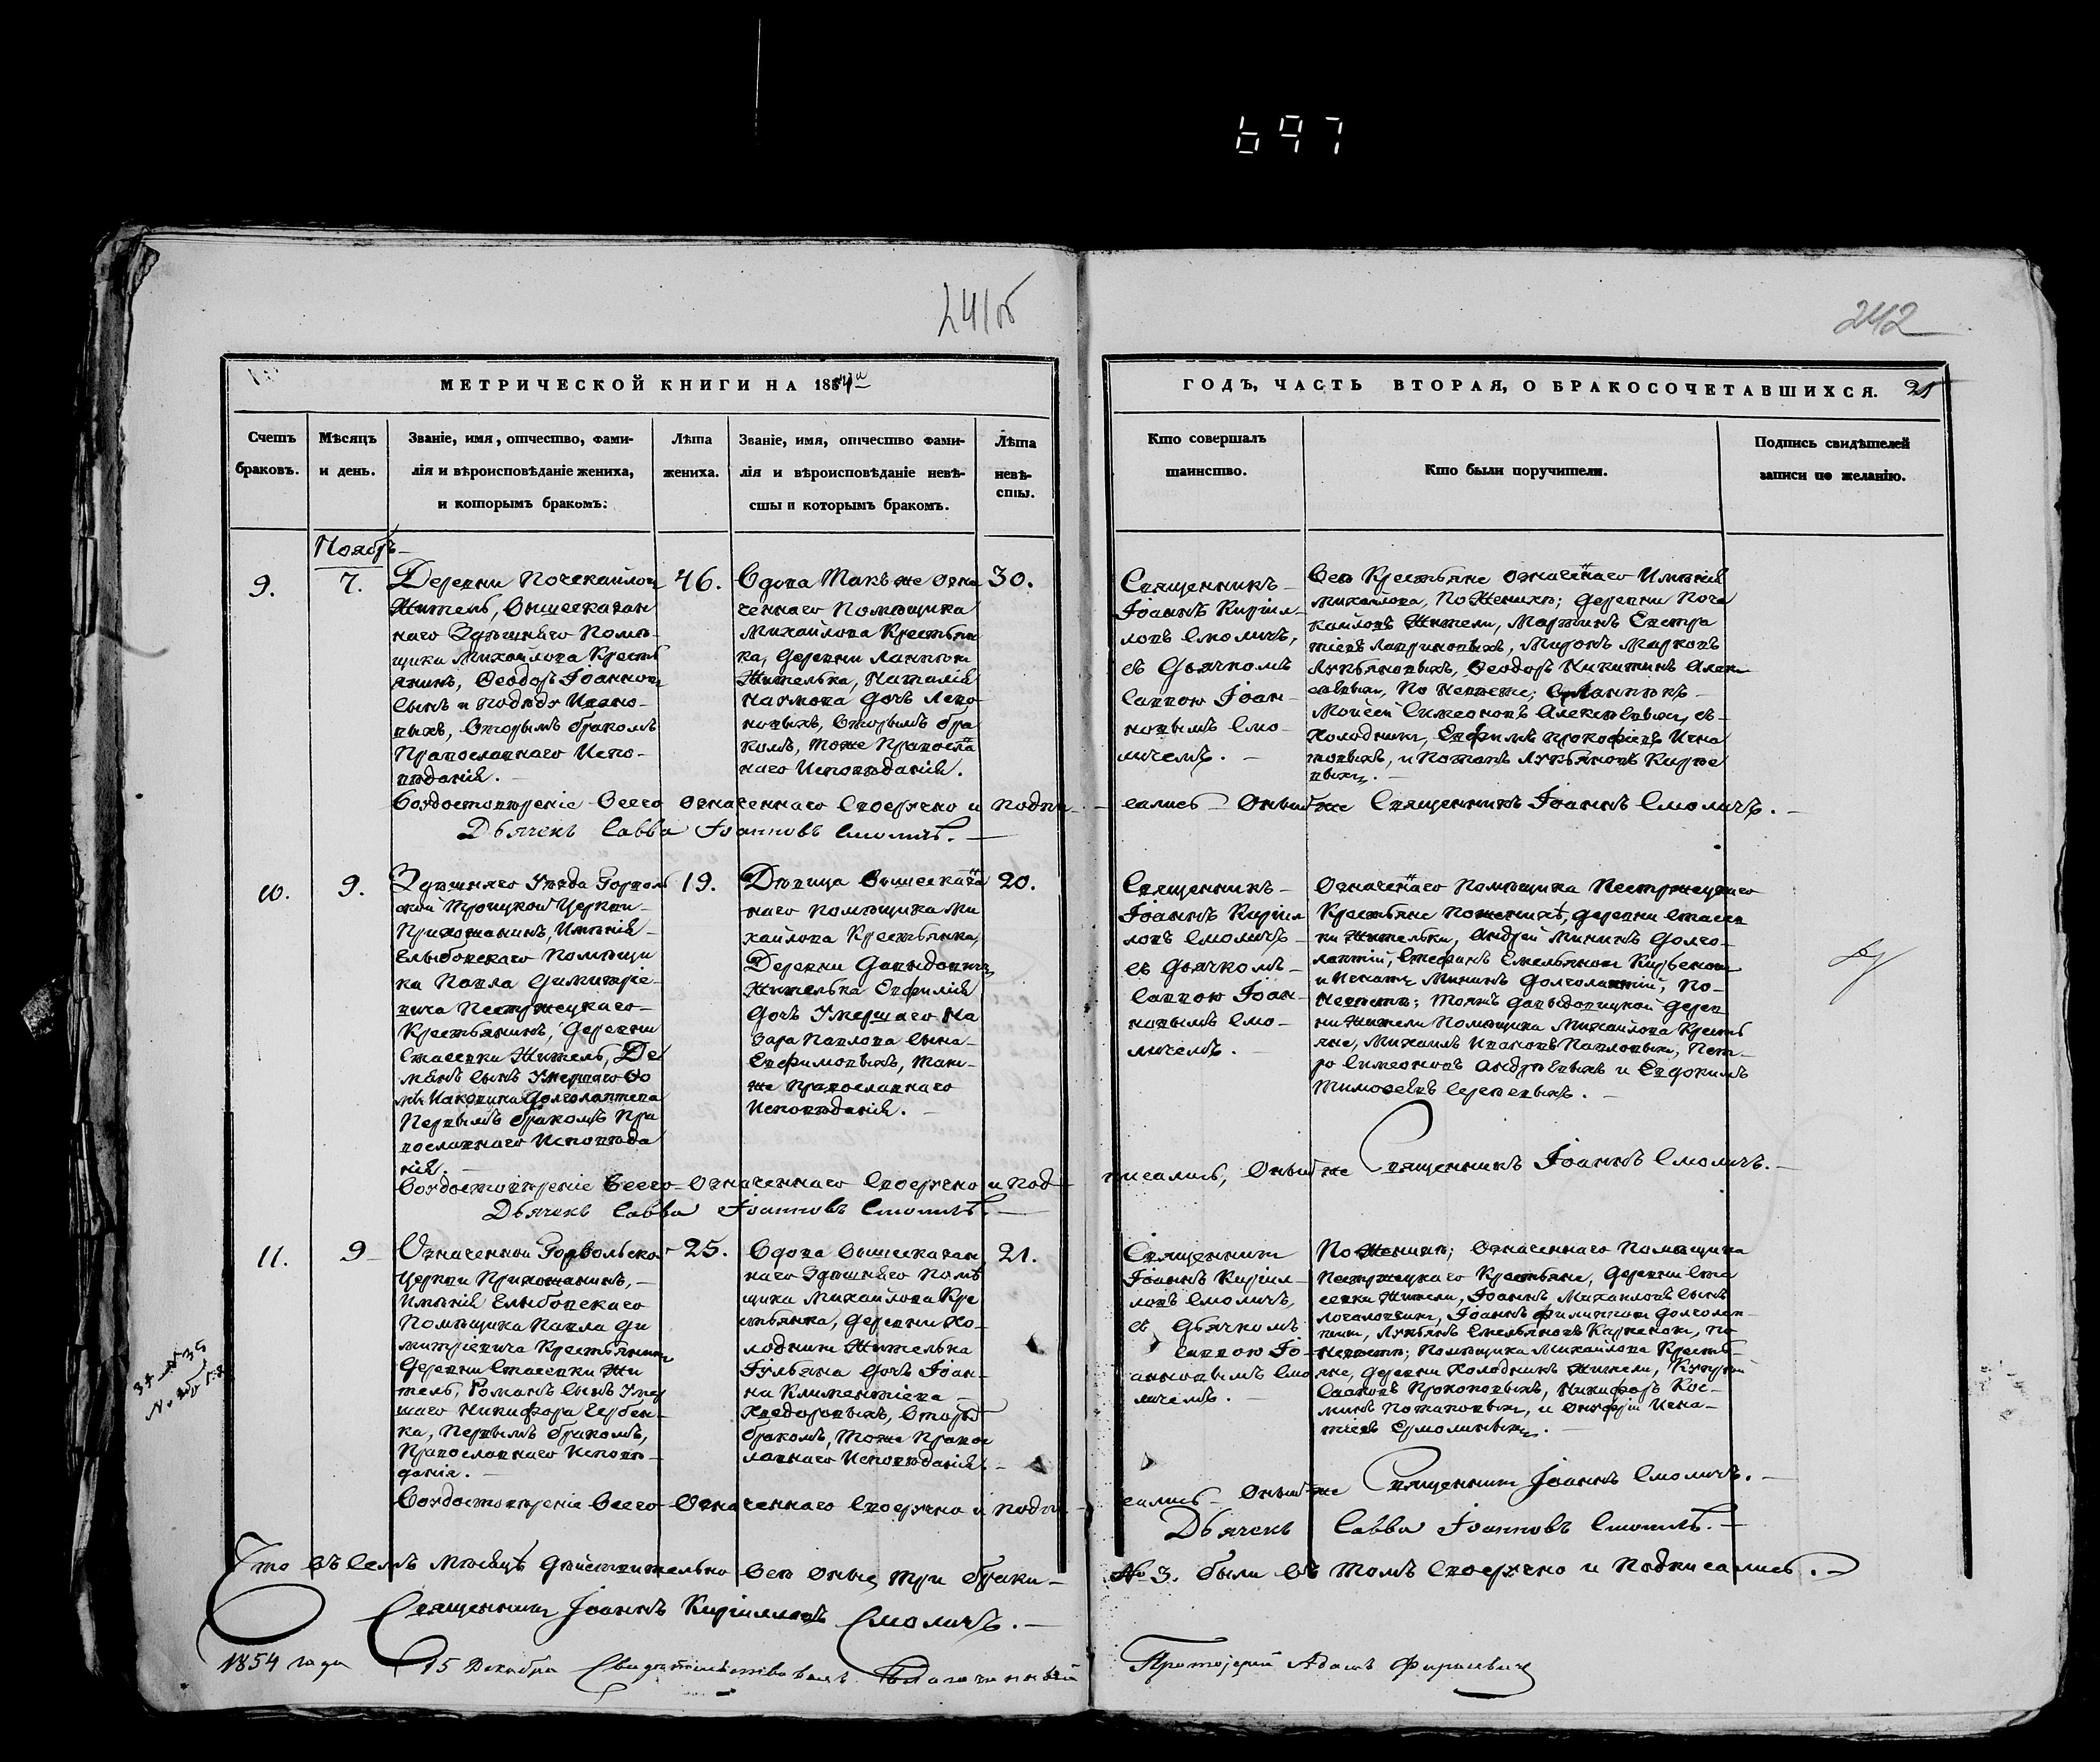 697
241об
242
МЕТРИЧЕСКОЙ КНИГИ НА 1854й
ГОДЪ, ЧАСТЬ ВТОРАЯ, О БРАКОСОЧЕТАВШИХСЯ.
21
Счетъ браковъ.
Мѣсяцъ и день.
Званіе, имя, отчество, фами-
лія и вѣроисповѣданіе жениха,
и которымъ бракомъ.
Лѣта
жениха.
Званіе, имя, отчество фами-
лія и вѣроисповѣданіе невѣ-
сты и которымъ бракомъ.
Лѣта
невѣ-
сты.
Кто совершалъ
таинство.
Кто были поручители.
Подпись свидѣтелей
записи по желанію.
Ноябрь
9.
7.
Деревни Почекайлова
Житель, Вышесказан
наго Здѣшняго Помѣ-
щика Михайлова Кресть
янинъ, Ѳеодоръ Іоанновъ
сынъ
вторымъ бракомъ
Православнаго Испо-
вѣданія.
46.
Вдова Такъ же Озна
ченнаго Помѣщика
Михайлова Крестьян
ка, деревни
Жителька, Наталія
Наумова дочь Лео-
новыхъ, вторымъ бра
комъ, тоже Правосла
наго Исповѣданія.
30.
Священникъ
Іоаннъ Кирил-
ловъ Смоличъ,
съ Дьячкомъ
Саввою Іоан-
новымъ Смо-
личемъ.
Всѣ Крестьяне означеннаго Имѣнія
Михайлова, По Женихѣ; деревни Поче
кайловъ Жители, Мартинъ Евстра
тіевъ Лавриновыхъ, Миронъ Марковъ
Лукьяновыхъ, Ѳеодоръ Никитинъ Алек
сѣевыхъ, По Невѣстѣ;
Моисей Симеоновъ Алексѣевыхъ, съ
Холодникъ, Евфимъ Прокофіевъ Игна
товыхъ, и Потапъ Лукьяновъ Кирѣе
выхъ.
Во удостовѣреніе всего означеннаго своеручно и подпи-
сались Оный же Священникъ Іоаннъ Смоличъ.
Дьячекъ Савва Іоанновъ Смоличъ.
10.
9.
Здѣшняго Уѣзда Горволь
ской Троицкой Церкви
Прихожанинъ, Имѣнія
Глыбовскаго Помѣщи
ка Павла Димитріе-
вича Пестржецкаго
Крестьянинъ, деревни
Стасевки Житель, Де
мянъ сынъ Умершаго Ѳо
мы Долголаптева
Первымъ бракомъ Пра
вославнаго Исповѣда
нія.
19.
Дѣвица Вышесказа
наго Помѣщика Ми
хайлова Крестьянка,
Деревни Давыдовичъ
Жителька Евфимія
дочь Умершаго На
зара Павлова сына
Евфимовыхъ, Так-
же Православнаго
Исповѣданія.
20.
Священникъ
Іоаннъ Кирил
ловъ Смоличъ
съ Дьячкомъ
Саввою Іоан-
новымъ Смо-
личемъ.
Означеннаго Помѣщика Пестржецкаго
Крестьяне По женихѣ, деревни Стасев
ки Жительки, Андрей Мининъ Долго-
лаптій, Стефанъ Емельяновъ
и Игнатъ Мининъ Долголаптій, По
Невѣстѣ; Тояжъ Давыдовицкой дерев
ни Жители Помѣщика Михайлова Кресть
яне, Михаилъ Ивановъ Павловыхъ, Пет-
ро Симеоновъ Андрѣевыхъ и Евдокимъ
Тимоѳеевъ Сергѣевыхъ.
Во удостовѣреніе всего означеннаго своеручно и под-
писались, Оный же Священникъ Іоаннъ Смоличъ.
Дьячекъ Савва Іоанновъ Смоличъ.
11.
9
Означенной Горвольской
Церкви Прихожанинъ,
Имѣнія Глыбовскаго
Помѣщика Павла Ди
митріевича Крестьянинъ
деревни Стасевки Жи
тель, Романъ сынъ Умер
шаго Никифора Щербен-
ка, Первымъ бракомъ,
Православнаго Исповѣ-
данія.
25.
Вдова Вышесказан
наго Здѣшняго Помѣ
щика Михайлова Кре
стьянка, деревни Хо-
лодникъ Жителька
Іульяна дочь Іоан-
на Климентіева
Ѳеодоровыхъ, Вторымъ
бракомъ, тоже Правос
лавнаго Исповѣданія.
21.
Священникъ
Іоаннъ Кирил-
ловъ Смоличъ,
съ Дьячкомъ
Саввою Іо-
анновымъ Смо
личемъ.
По Женихѣ; Означеннаго Помѣщика
Пестржецкаго Крестьяне, деревни Ста
севки Жители, Іоаннъ Михаиловъ сынъ
Іоаннъ Филиповъ Долголап-
Лукьянъ Емельяновъ По
Невѣстѣ; Помѣщика Михайлова Кресть-
яне, деревни Холодникъ Жители,
Прокоповыхъ, Никифоръ Кос-
минъ Потаповыхъ, и Онуфрій Игна-
тіевъ Ермолиныхъ.
Во удостовѣреніе всего означеннаго своеручно и подпи-
сались Оный же Священникъ Іоаннъ Смоличъ.
Дьячекъ Савва Іоанновъ Смоличъ.
Что въ семъ мѣсяцѣ дѣйствительно всѣ оныя три браки
№ 3. были въ томъ своеручно и подписались.
Священникъ Іоаннъ Кирилловъ Смоличъ.
1854 года 15 Декабря Свидѣтельствовалъ Благочинный
Протоіерей Адамъ